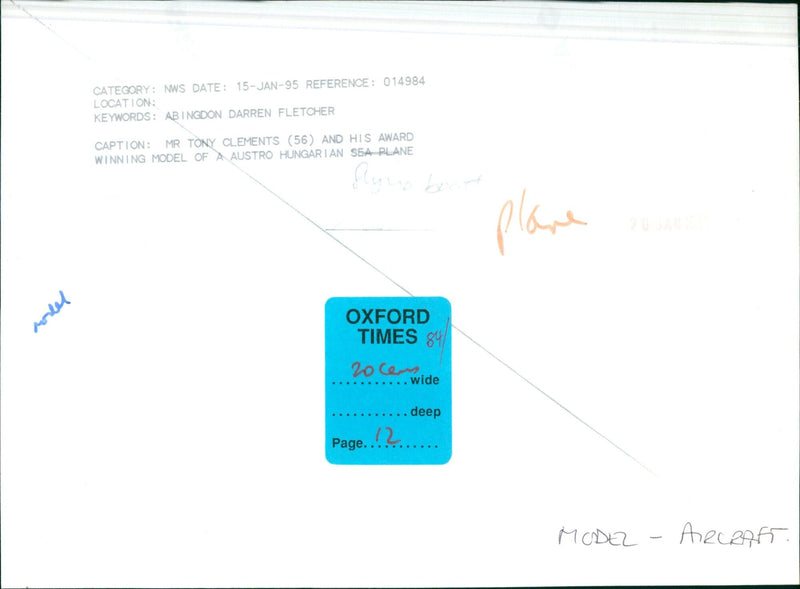 CATEGORY: NWS DATE: 15-JAN-95 REFERENCE: 014984
LOCATION:
KEYWORDS: ABINGDON DARREN FLETCHER
CAPTION: MR TONY CLEMENTS (56) AND HIS AWARD
WINNING MODEL OF A AUSTRO HUNGARIAN SEA PLANE
flying boat
plane
model
OXFORD
TIMES 84/
20 cems wide
deep
Page 12
MODEL - AIRCRAFT.